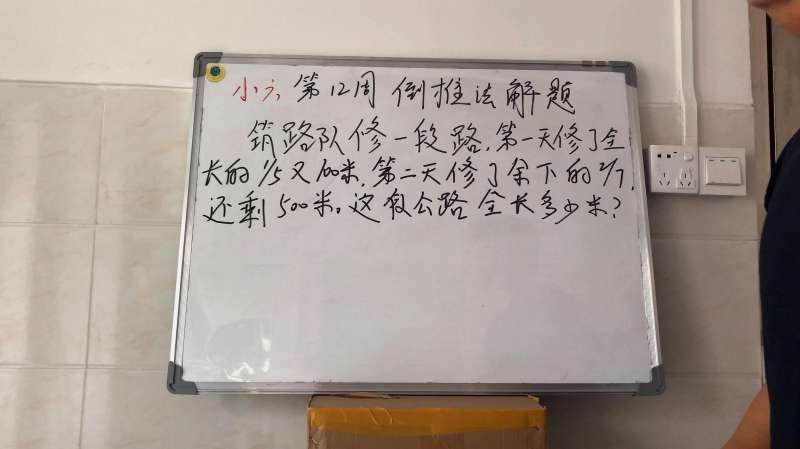 小六 第12周 倒推法解题
筑路队修一段路,第一天修了全
长的1/5又100米,第二天修了余下的2/7,
还剩500米。这段公路全长多少米?